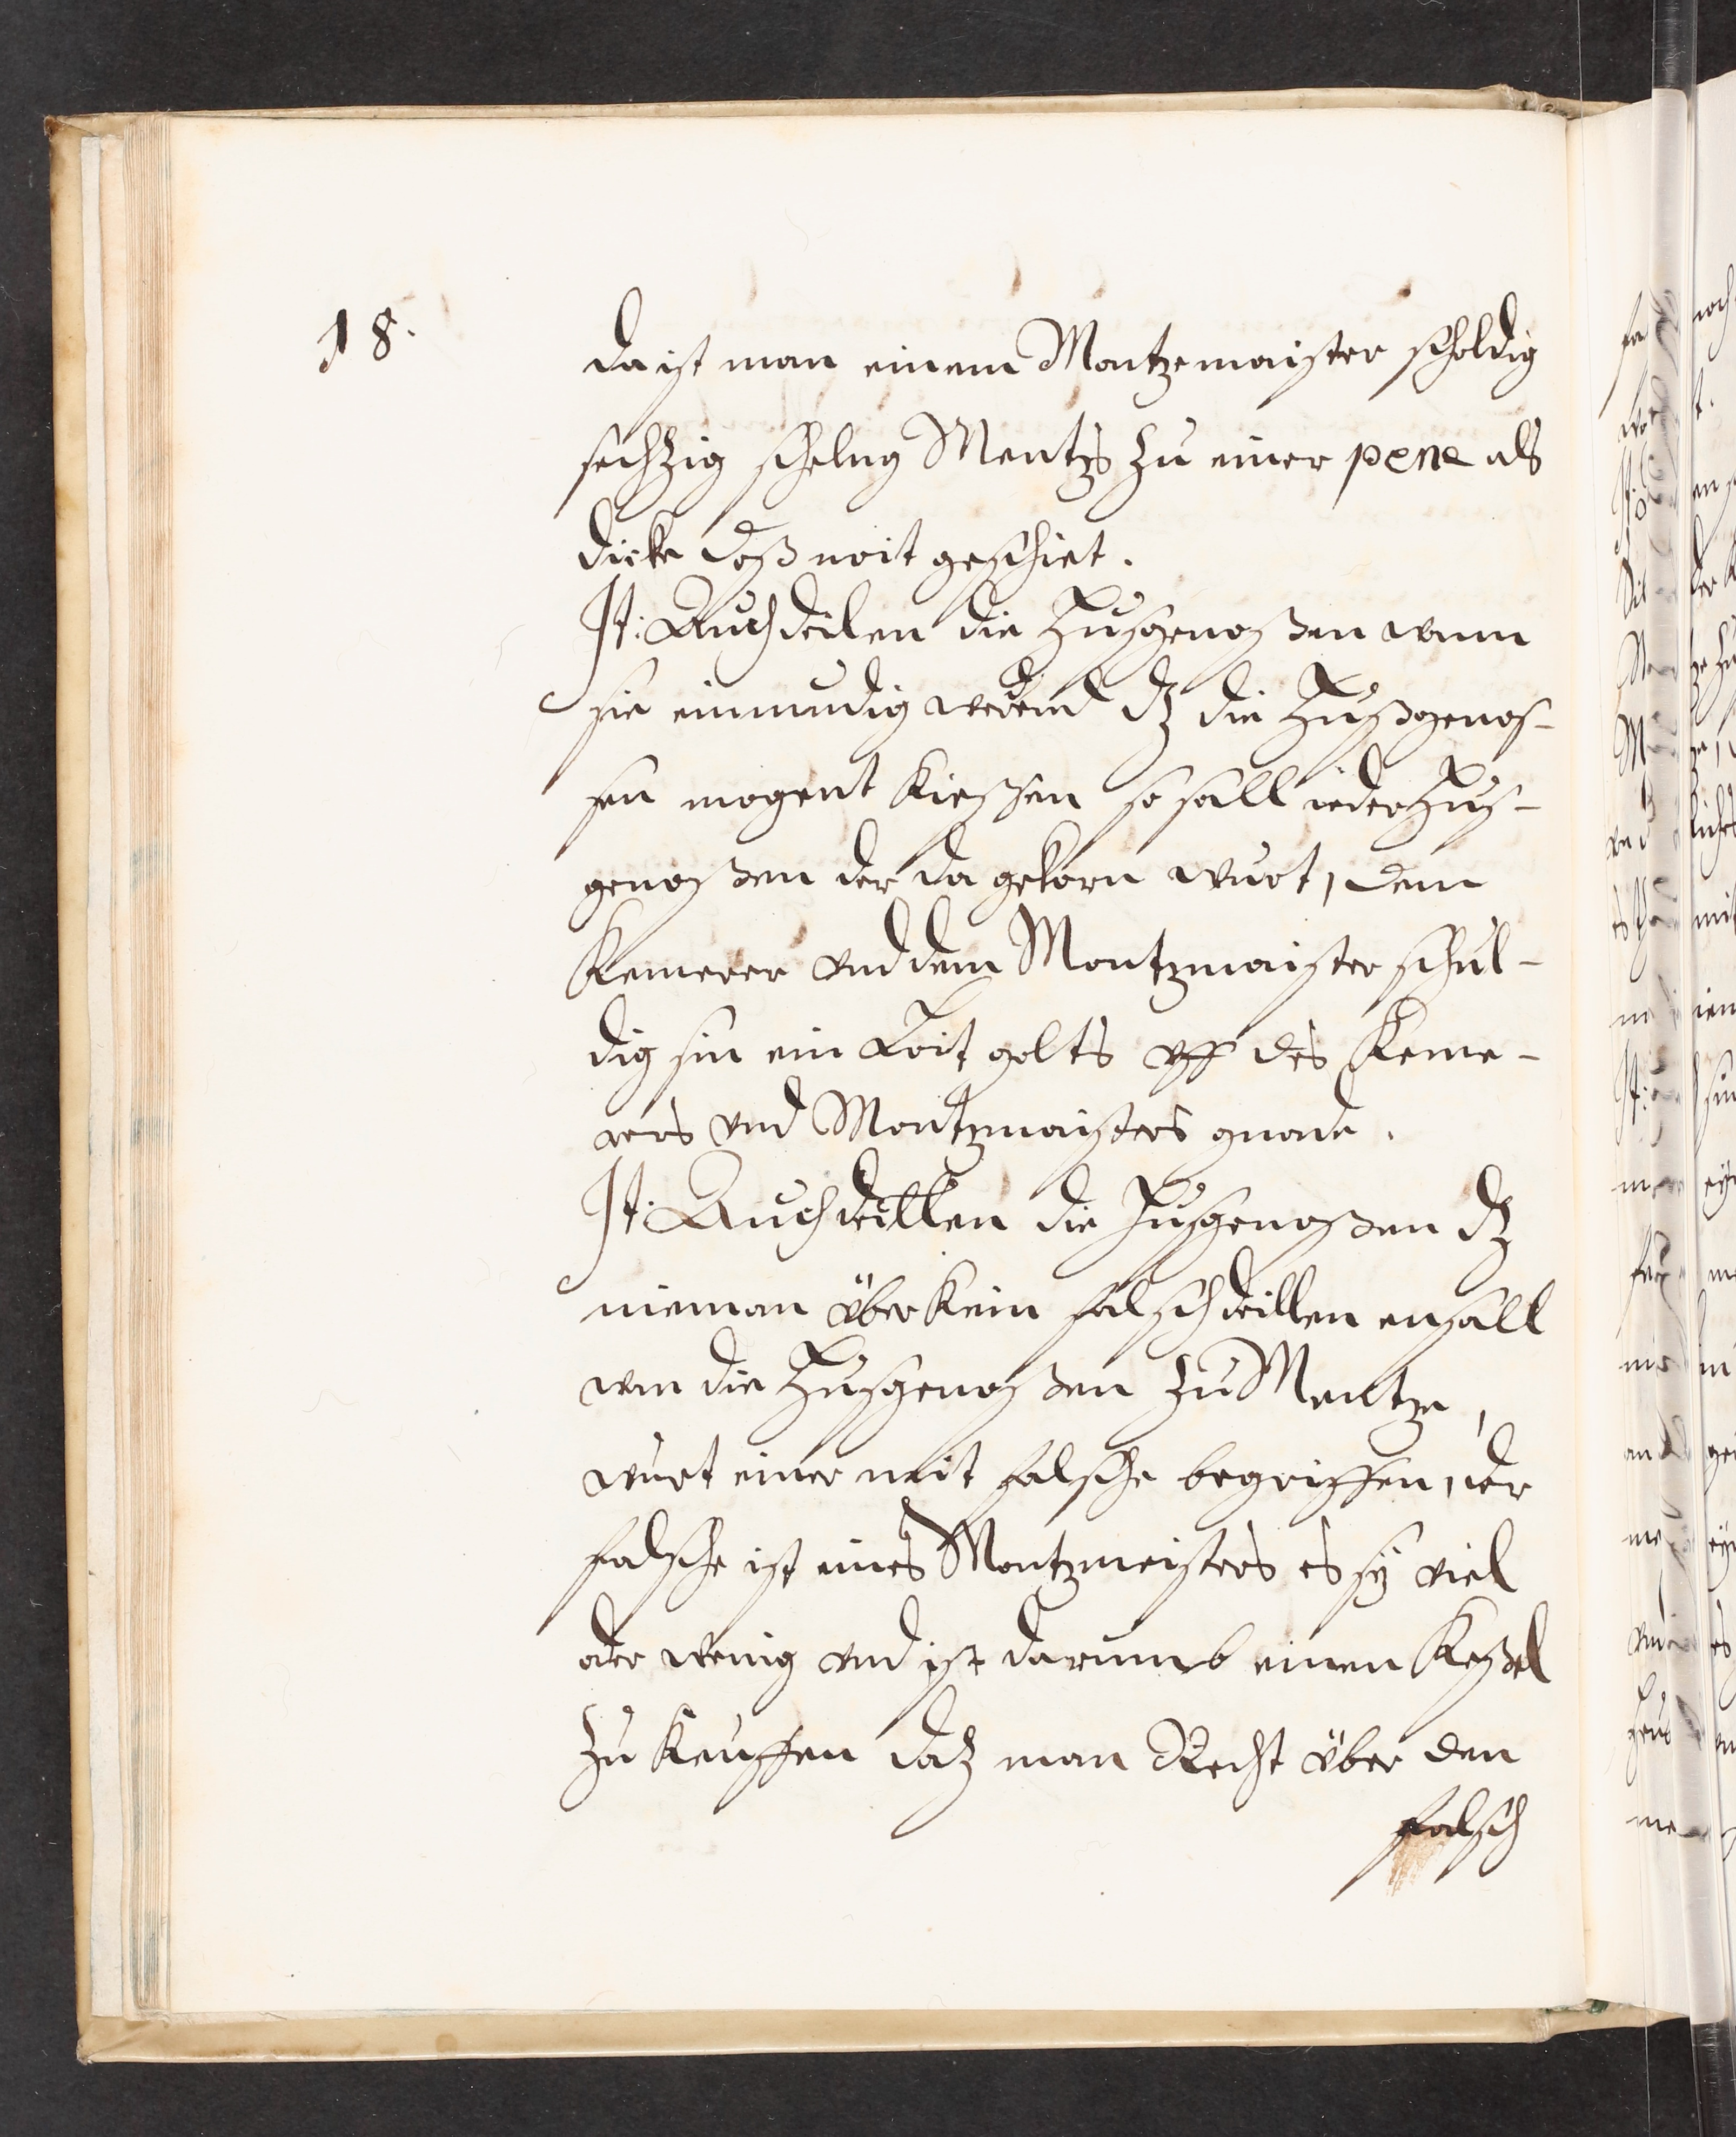 18.
da ist man einem Montzemaister scholdig
sechzig schelng Mentzs zu einer pene als
dicke deß noit geschiet.
It: Auch deilen die Hußgenoßen wann
sie einmudig werdend dz die Hußgenos-
sen mogent kießen so sall ieder Huß-
genoßen der da gekorn wurt, dem
Kemerer vnd dem Montzmaister schul-
dig sin ein Loit golts vff des Keme-
rers vnd Montzmaisters gnade.
It: Auch deillen die Hußgenoßen dz
nieman über kein falsch deillen ensall
wan die Hußgenoßen zu Mentze,
wurt einer mit falsche begriffen, der
falsche ist eines Montzmeisters es sÿ viel
oder wenig vnd ist darumb einen Keßel
zu keuffen daz man Recht über den
falsch